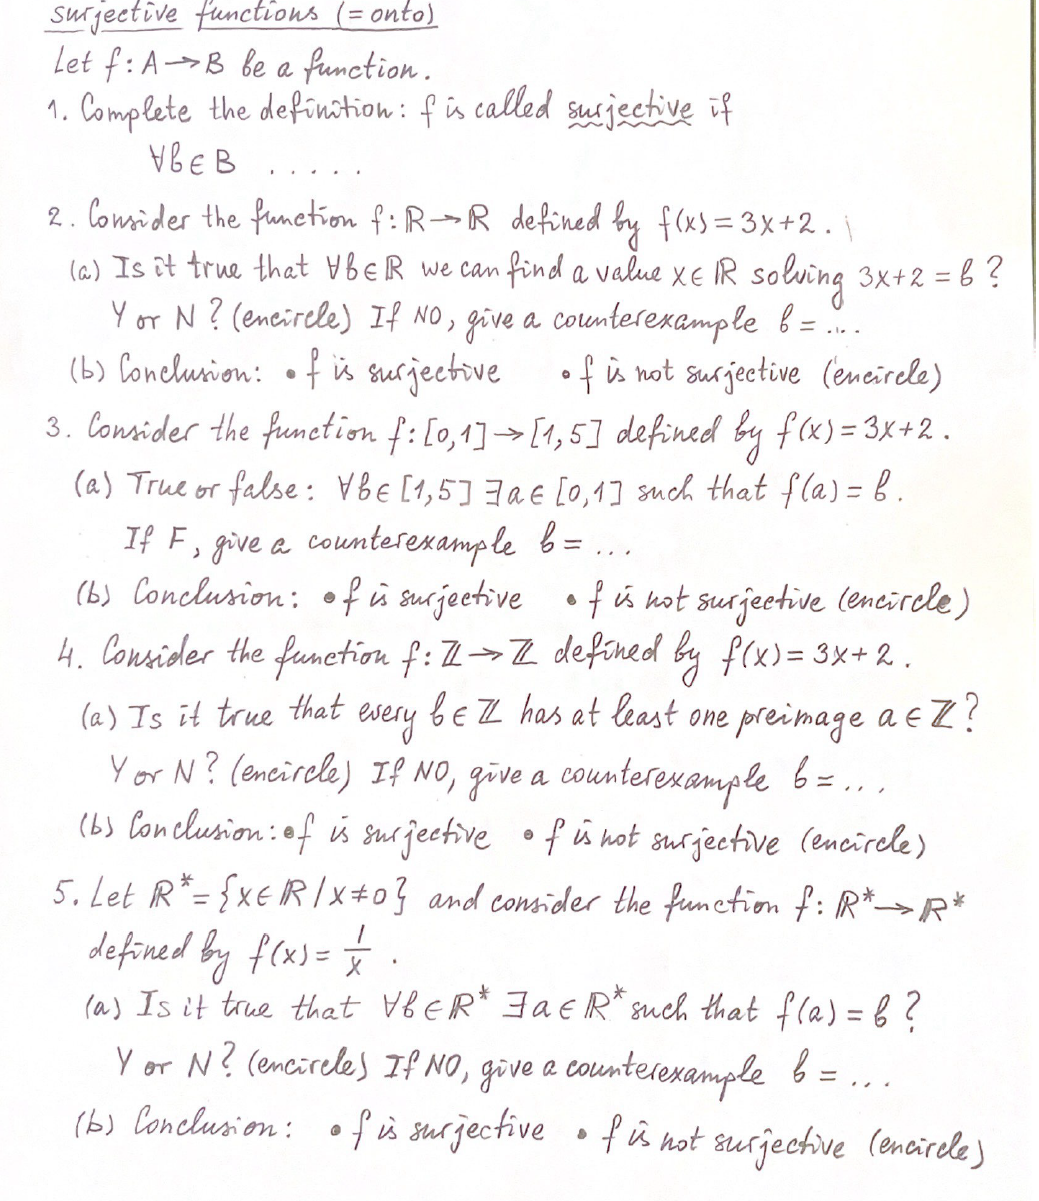 surjective functions (= onto)
Let f: A → B be a function.
1. Complete the definition: f is called surjective if
∀b ∈ B .....
2. Consider the function f: ℝ → ℝ defined by f(x) = 3x+2.
(a) Is it true that ∀b∈ℝ we can find a value x∈ℝ solving 3x+2 = b?
Y or N? (encircle) If NO, give a counterexample b = ....
(b) Conclusion: • f is surjective • f is not surjective (encircle)
3. Consider the function f: [0,1] → [1,5] defined by f(x) = 3x+2.
(a) True or false: ∀b∈[1,5] ∃a∈[0,1] such that f(a) = b.
If F, give a counterexample b = ...
(b) Conclusion: • f is surjective • f is not surjective (encircle)
4. Consider the function f: ℤ → ℤ defined by f(x) = 3x+2.
(a) Is it true that every b∈ℤ has at least one preimage a∈ℤ?
Y or N? (encircle) If NO, give a counterexample b = ...
(b) Conclusion: • f is surjective • f is not surjective (encircle)
5. Let ℝ* = {x∈ℝ / x≠0} and consider the function f: ℝ* → ℝ*
defined by f(x) = 1/x .
(a) Is it true that ∀b∈ℝ* ∃a∈ℝ* such that f(a) = b?
Y or N? (encircle) If NO, give a counterexample b = ...
(b) Conclusion: • f is surjective • f is not surjective (encircle)